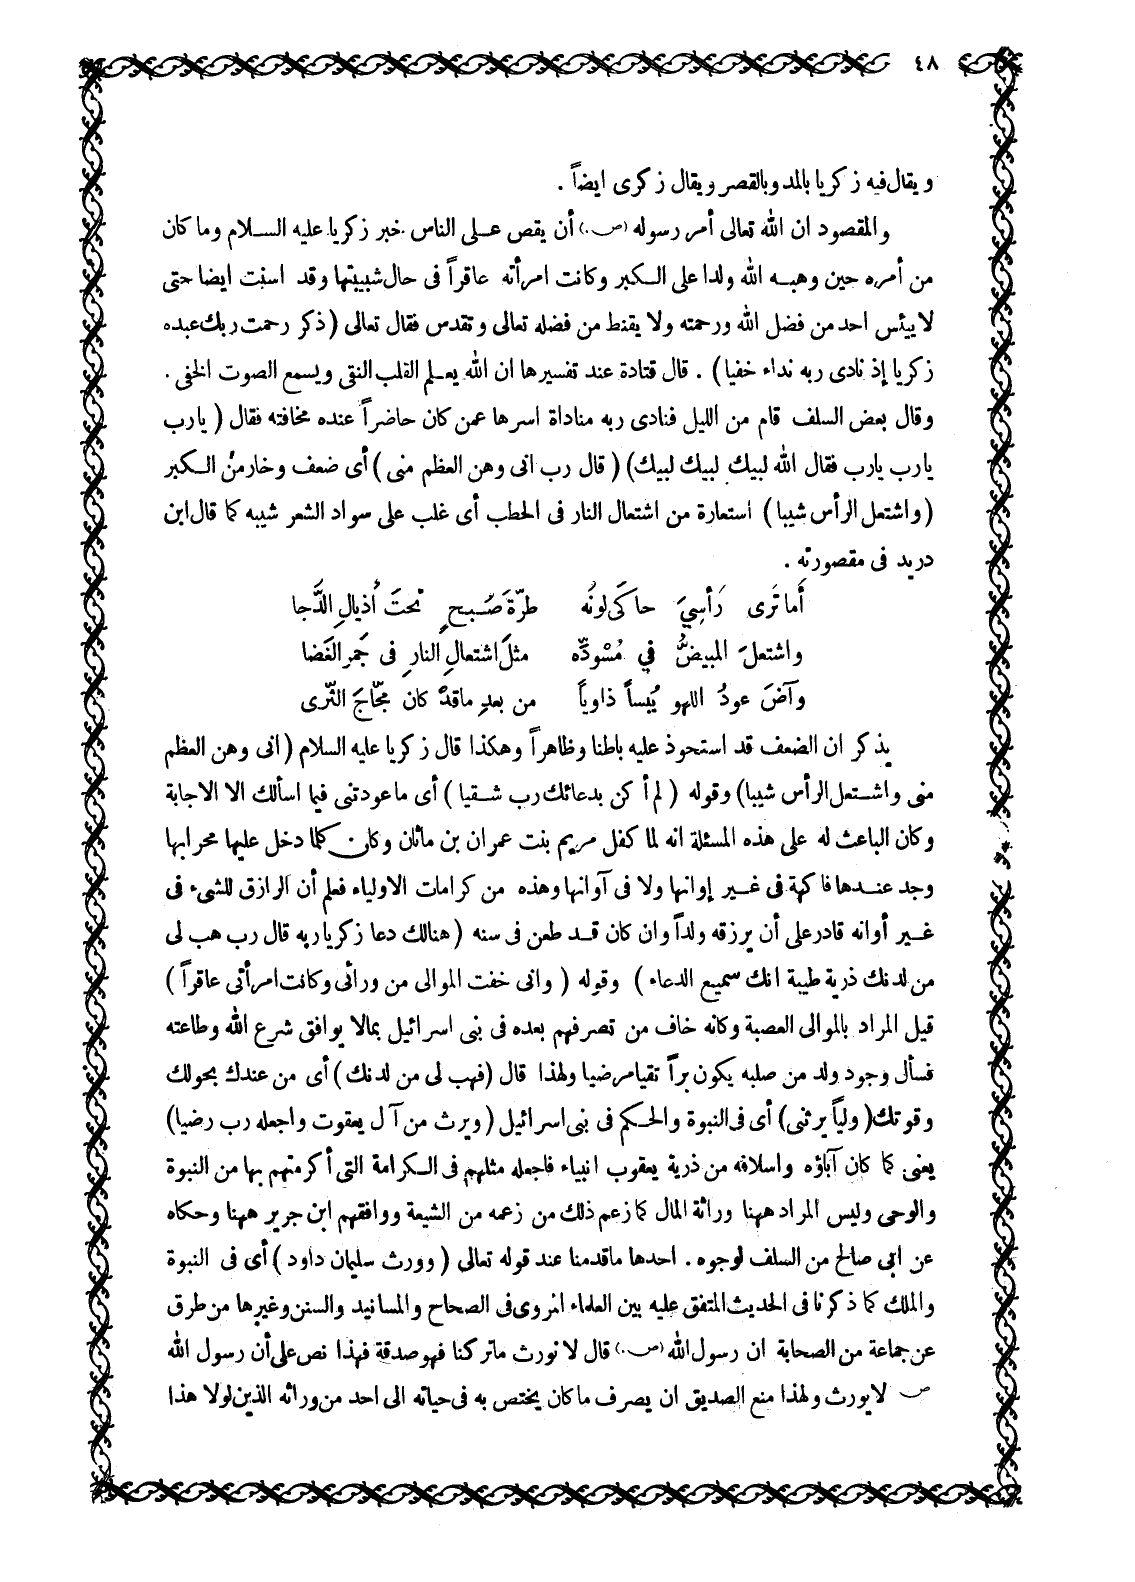 ٤٨
ويقال فيه زكريا بالمد وبالقصر ويقال زكرى ايضاً .
والمقصود ان الله تعالى أمر رسوله (ص) أن يقص على الناس خبر زكريا عليه السلام وما كان
من أمره حين وهبه الله ولدا على الكبر وكانت امرأته عاقراً فى حال شبيبتها وقد اسنت ايضا حتى
لا ييئس احد من فضل الله ورحمته ولا يقنط من فضله تعالى وتقدس فقال تعالى ( ذكر رحمت ربك عبده
زكريا إذ نادى ربه نداء خفيا ) . قال قتادة عند تفسيرها ان الله يعلم القلب النقى ويسمع الصوت الخفى .
وقال بعض السلف قام من الليل فنادى ربه مناداة اسرها عمن كان حاضراً عنده مخافته فقال ( يارب
يارب يارب فقال الله لبيك لبيك لبيك) ( قال رب انى وهن العظم منى ) أى ضعف وخار من الكبر
( واشتعل الرأس شيبا ) استعارة من اشتعال النار فى الحطب أى غلب على سواد الشعر شيبه كما قال ابن
دريد فى مقصورته .
أما تَرى رَأسِيَ حاكَى لونُه طرّةَ صُبحٍ تحتَ أذيالِ الدَّجا
واشتعلَ المبيضُّ في مُسْودّه مثلَ اشتعالِ النارِ فى جَمرِ الغَضا
وآضَ عودُ اللهو يُبساً ذاوياً من بعدِ ماقدْ كان مجّاجَ الثّرى
يذكر ان الضعف قد استحوذ عليه باطنا وظاهراً وهكذا قال زكريا عليه السلام ( انى وهن العظم
منى واشتعل الرأس شيبا) وقوله ( لم أكن بدعائك رب شقيا ) أى ماعودتنى فيما اسألك الا الاجابة
وكان الباعث له على هذه المسئلة انه لما كفل مريم بنت عمران بن ماثان وكان كلما دخل عليها محرابها
وجد عندها فاكهة فى غير إوانها ولا فى آوانها وهذه من كرامات الاولياء فعلم أن الرازق للشىء فى
غير أوانه قادر على أن يرزقه ولداً وان كان قد طعن فى سنه ( هنالك دعا زكريا ربه قال رب هب لى
من لدنك ذرية طيبة انك سميع الدعاء ) وقوله ( وانى خفت الموالى من ورائى وكانت امرأتى عاقراً )
قيل المراد بالموالى العصبة وكانه خاف من تصرفهم بعده فى بنى اسرائيل بمالا يوافق شرع الله وطاعته
فسأل وجود ولد من صلبه يكون براً تقيا مرضيا ولهذا قال (فهب لى من لدنك ) أى من عندك بحولك
وقوتك( ولياً يرثنى) أى فى النبوة والحكم فى بنى اسرائيل ( ويرث من آل يعقوت واجعله رب رضيا)
يعنى كما كان آباؤه واسلافه من ذرية يعقوب انبياء فاجعله مثلهم فى الكرامة التى أكرمتهم بها من النبوة
والوحى وليس المراد ههنا وراثة المال كما زعم ذلك من زعمه من الشيعة ووافقهم ابن جرير ههنا وحكاه
عن ابى صالح من السلف لوجوه . احدها ماقدمنا عند قوله تعالى ( وورث سليمان داود ) أى فى النبوة
والملك كما ذكرنا فى الحديث المتفق عليه بين العلماء المروى فى الصحاح والمسانيد والسنن وغيرها من طرق
عن جماعة من الصحابة ان رسول الله (ص) قال لا نورث ماتركنا فهو صدقة فهذا نص على أن رسول الله
ص لا يورث ولهذا منع الصديق ان يصرف ماكان يختص به فى حياته الى احد من وراثه الذين لولا هذا